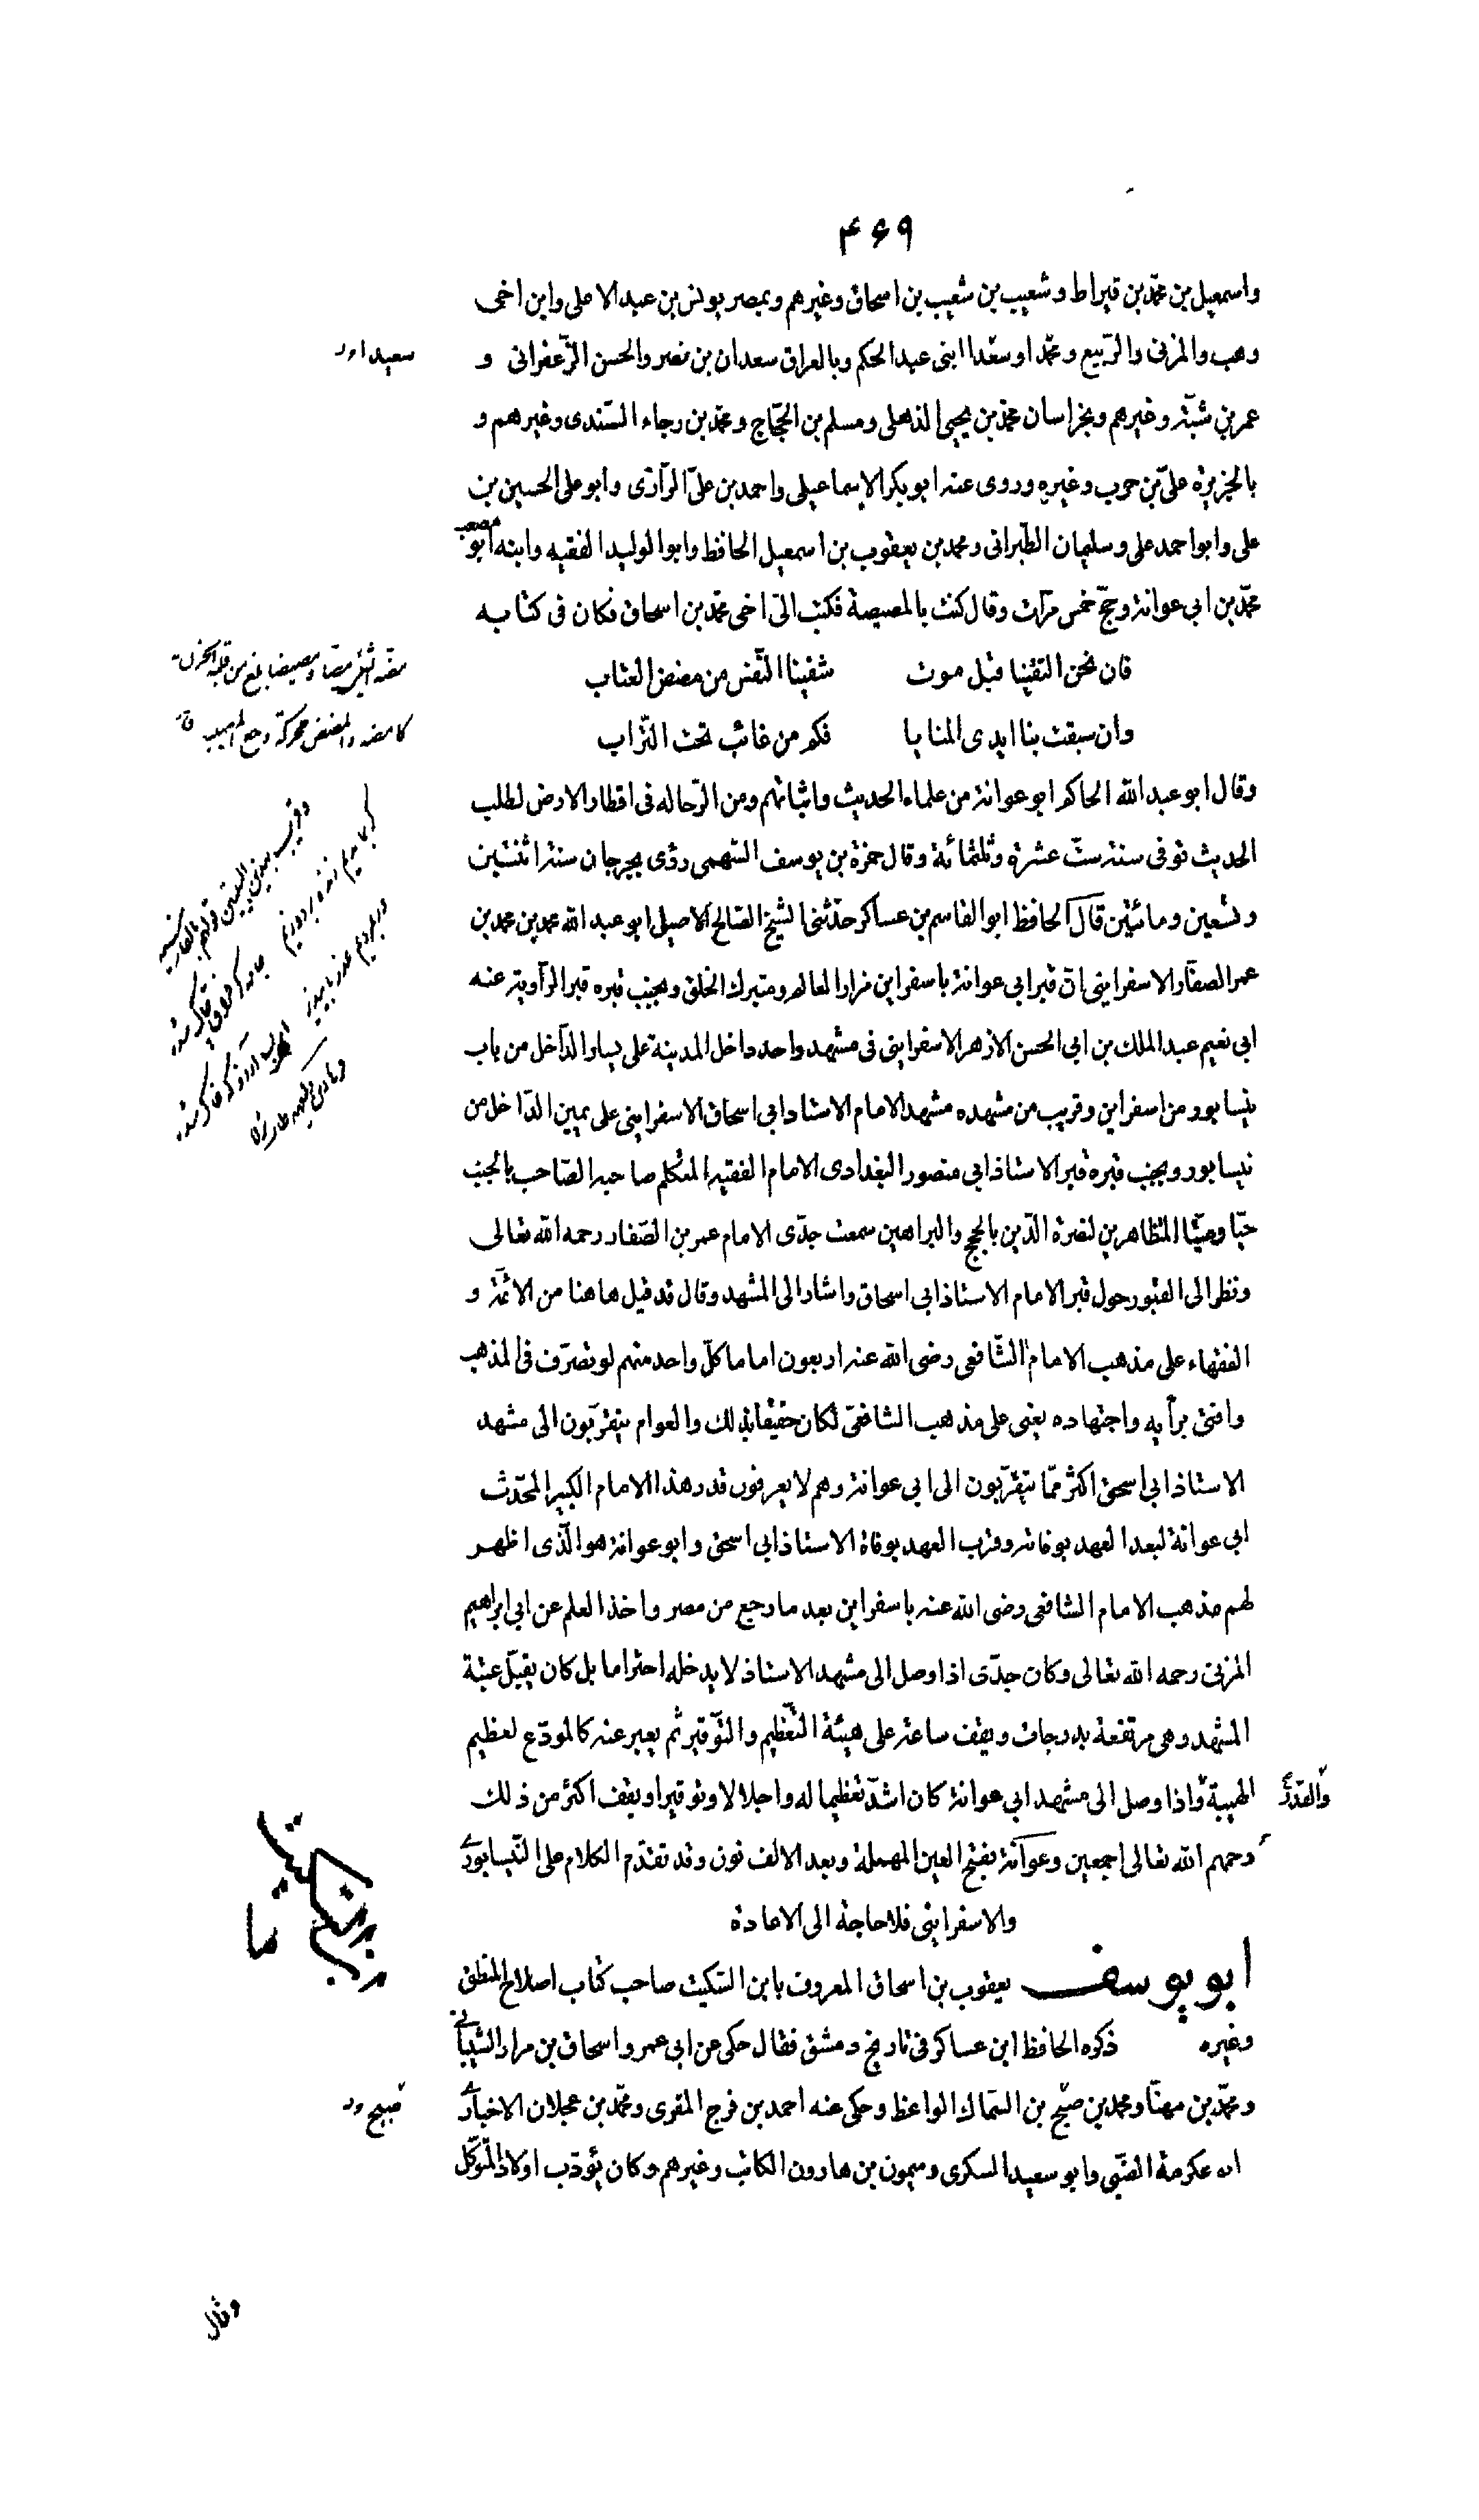 ۴۶۹
واسمعيل بن محمّد بن قيراط وشعيب بن شعيب بن اسحاق وغيرهم وبمصر يونس بن عبد الاعلى وابن اخى
وهب والمزنى والرّبيع ومحمّدا وسعدا ابنى عبد الحكم وبالعراق سعدان بن نصر والحسن الزّعفرانى و
عمر بن شبّة وغيرهم وبخراسان محمّد بن يحيى الذهلى ومسلم بن الحجّاج ومحمّد بن رجاء السّندى وغيرهم و
بالجزيرة علىّ بن حرب وغيره وروى عنه ابو بكر الاسماعيلى واحمد بن علىّ الرّازى وابو على الحسين بن
على وابو احمد على وسليمان الطّبرانى ومحمد بن يعقوب بن اسمعيل الحافظ وابو الوليد الفقيه وابنه ابو مصعب
محمّد بن ابى عوانة وحجّ خمس مرّات وقال كنت بالمصيصة فكتب الىّ اخى محمّد بن اسحاق فكان فى كتابه
فان نحن التقينا قبل موت شفينا النّفس من مضض العتاب
وان سبقت بنا ايدى المنايا فكم من غائب تحت التّراب
وقال ابو عبد الله الحاكم ابو عوانة من علماء الحديث واثباتهم ومن الرّحالة فى اقطار الارض لطلب
الحديث توفى سنة ستّ عشرة وثلثمائة وقال حمزة بن يوسف السّهمى روى بجرجان سنة اثنتين
وتسعين ومائتين قال الحافظ ابو القاسم بن عساكر حدّثنى الشيخ الصّالح الاصيل ابو عبد الله محمد بن محمد بن
عمر الصفّار الاسفراينى انّ قبر ابى عوانة باسفراين مزار العالم ومتبرك الخلق وبجنب قبره قبر الرّاوية عنه
ابى نعيم عبد الملك بن ابى الحسن الازهر الاسفراينى فى مشهد واحد داخل المدينة على يسار الدّاخل من باب
نيسابور من اسفراين وقريب من مشهده مشهد الامام الاستاد ابى اسحاق الاسفراينى على يمين الدّاخل من
نيسابور وبجنب قبره قبر الاستاذ ابى منصور البغدادى الامام الفقيه المتكلم صاحبه الصّاحب بالجنب
حيّا وميّتا المتظاهرين لنصرة الدّين بالحجج والبراهين سمعت جدّى الامام عمر بن الصّفار رحمه الله تعالى
ونظر الى القبور حول قبر الامام الاستاذ ابى اسحاق واشار الى المشهد وقال قد قيل هاهنا من الائمّة و
الفقهاء على مذهب الامام الشّافعى رضى الله عنه اربعون اماما كلّ واحد منهم لو تصرّف فى المذهب
وافتى برأيه واجتهاده يعنى على مذهب الشافعىّ لكان حقيقا بذلك والعوام يتقرّبون الى مشهد
الاستاذ ابى اسحق اكثر ممّا يتقرّبون الى ابى عوانة وهم لا يعرفون قدر هذا الامام الكبير المحدّث
ابى عوانة لبعد العهد بوفاته وقرب العهد بوفاة الاستاذ ابى اسحق وابو عوانة هو الّذى اظهر
لهم مذهب الامام الشافعى رضى الله عنه باسفراين بعد ما رجع من مصر واخذ العلم عن ابى ابراهيم
المزنى رحمه الله تعالى وكان جدّى اذا وصل الى مشهد الاستاذ لا يدخله احتراما بل كان يقبّل عتبة
المشهد وهى مرتفعة بدرجات ويقف ساعة على هيئة التّعظيم والتّوقير ثم يعبر عنه كالمودّع لعظيم
الهيبة واذا وصل الى مشهد ابى عوانة كان اشدّ تعظيما له واجلالا وتوقيرا ويقف اكثر من ذلك
والقدر
رحمهم الله تعالى اجمعين وعوانة بفتح العين المهملة وبعد الالف نون وقد تقدّم الكلام على النّيسابورى
والاسفراينى فلا حاجة الى الاعادة
ابو يوسف يعقوب بن اسحاق المعروف بابن السّكيت صاحب كتاب اصلاح المنطق
وغيره ذكره الحافظ ابن عساكر فى تاريخ دمشق فقال حكى عن ابى عمرو اسحاق بن مرار الشّيبانى
ومحمّد بن مهنّا ومحمد بن صبّح بن السّماك الواعظ وحكى عنه احمد بن فرج المقرى ومحمّد بن عجلان الاخبارى
عكرمة الضّبّى وابو سعيد السكرى وميمون بن هارون الكاتب وغيرهم وكان يؤدّب اولاد المتوكّل
سعيد
صبيح
ابن سكيت
وقال